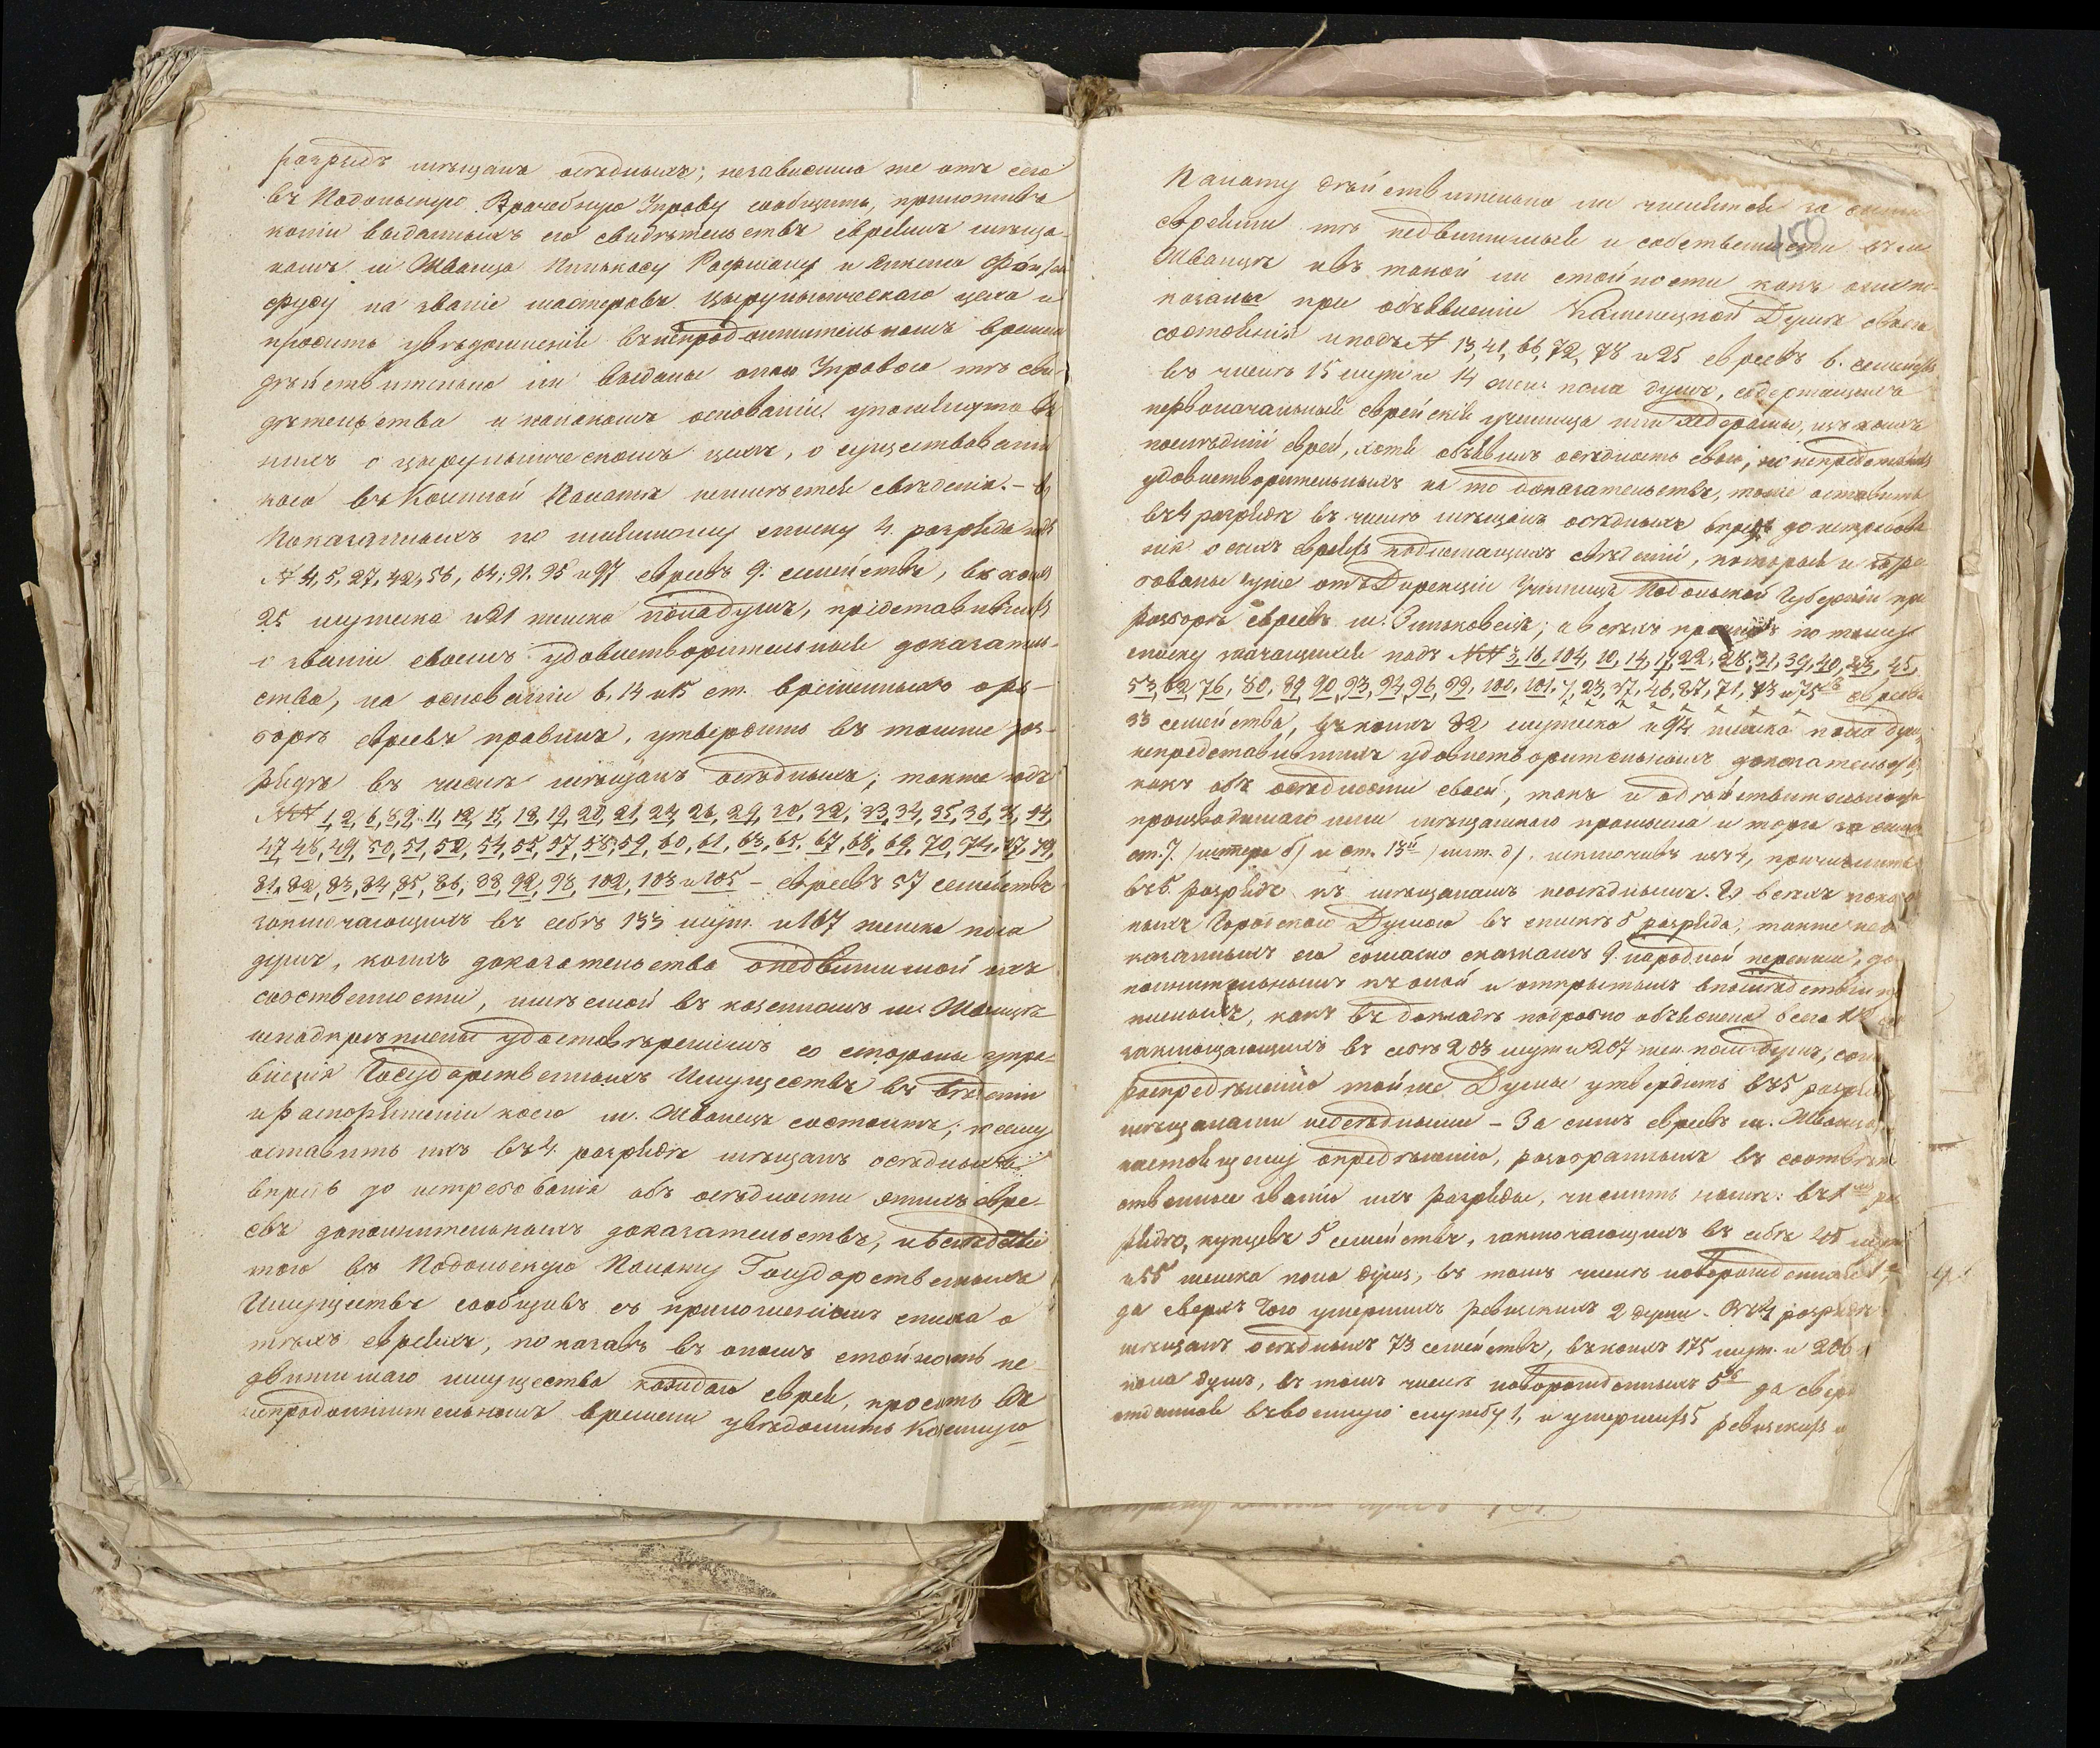 разрядъ мѣщанъ осѣдлыхъ; независимо же отъ сего
въ Подольскую Врачебную Управу сообщить, приложивъ
копіи выданныхъ ею свидѣтельствъ евреямъ мѣща-
намъ м. Жванца Пинькасу Рофману и
на званіе мастеровъ Цырульническаго цеха и
просить увѣдомленія въ непродолжительномъ времени
дѣйствительно ли выданы оною Управою тѣ сви-
дѣтельства и на какомъ основаніи упомянуто въ
нихъ о цырульническомъ цехѣ, о существованіи
коего въ Казенной Палатѣ неимѣется свѣденія. –
Показанныхъ по таковому списку 4. разряда подъ
№ 4, 5, 27, 42, 56, 64, 91, 95 и 97 евреевъ 9. семействъ, въ коихъ
25 мужеска и 21 женска пола душъ, представившихъ
о званіи своемъ удовлетворительныя доказатель-
ства, на основаніи 6, 14 и 15 ст. временныхъ о раз-
борѣ евреевъ правилъ, утвердить въ томже раз-
рядѣ въ числѣ мѣщанъ осѣдлыхъ; также подъ
№№ 1, 2, 6, 8, 9, 11, 12, 15, 18, 19, 20, 21, 24, 26, 29, 30, 32, 33, 34, 35, 36, 44,
47, 48, 49, 50, 51, 52, 54, 55, 57, 58, 59, 60, 61, 63, 65, 67, 68, 69, 70, 74, 77, 79,
81, 82, 83, 84, 85, 86, 88, 92, 98, 102, 103 и 105 – евреевъ 57 семействъ
заключающихъ въ себѣ 133 муж. и 167 женска пола
душъ, коихъ доказательства о недвижимой ихъ
собственности, имѣемой въ казенномъ м. Жванцѣ
неподкрѣплены удостовѣреніемъ со стороны управ-
вленія Государственныхъ Имуществъ въ вѣденіи
и распоряженіи коего м. Жванецъ состоитъ; посему
оставить ихъ въ 4. разрядѣ мѣщанъ осѣдлыхъ
впредь до истребованія объ осѣдлости этихъ евре-
евъ дополнительныхъ доказательствъ, и вслѣдствіе
того въ Подольскую Палату Государственныхъ
Имуществъ сообщивъ съ приложеніемъ списка о
тѣхъ евреяхъ, показавъ въ ономъ стойность не-
движимаго имущества каждаго еврея, просить въ
непродолжительномъ времени увѣдомить Казенную
150
Палату дѣйствительно ли числится за
евреями тѣ недвижимыя собственности въ м.
Жванцѣ и въ такой ли стойности какъ они по-
казаны при объявленіи Каменецкой Думѣ своего
состоянія и подъ № 13, 41, 66, 72, 78 и 25 евреевъ 6. семействъ
въ числѣ 15 муж и 14 жен: пола душъ, содержащихъ
первоначальныя еврейскія училища или хедерамы, изъ коихъ
послѣдній еврей, хотя объявилъ осѣдлость свою, но непредставилъ
удовлетворительныхъ на то доказательствъ, также оставить
въ 4 разрядѣ въ числѣ мѣщанъ осѣдлыхъ впредь до истребова-
нія о сихъ евреяхъ надлежащихъ свѣденій, которыя и
требованы уже отъ Дирекціи Училищъ Подольской Губерніи при
разборѣ евреевъ м. Зиньковецъ; а всѣхъ прочихъ по томуже
списку значущихся подъ №№ 3, 16, 104, 10, 14, 17, 22, 28, 31, 39, 40, 43, 45,
53, 62, 76, 80, 89, 90, 93, 94, 96, 99, 100, 101, 7, 23, 37, 46, 87, 71, 73 и 75 евреевъ
33 семейства, въ коихъ 82 мужеска и 94 женска пола душ,
непредставившихъ удовлетворительныхъ доказательствъ
какъ объ осѣдлости своей, такъ и о дѣйствительномъ
производимаго ими мѣщанскаго промысла и торга
ст. 7. /литера б/ и ст. 13й /лит. д/. исключивъ изъ 4, причислить
въ 5. разрядъ къ мѣщанамъ неосѣдлымъ. Всѣхъ показан-
ныхъ Городскою Думою въ спискѣ 5 разряда, также
казанныхъ ею согласно сказкамъ 9. народной переписи, до-
полнительнымъ къ оной и открытыхъ впослѣдствіи
какъ въ докладѣ подробно объяснено всего
заключающихъ въ себѣ 203 муж и 207 жен. пола душъ,
распредѣленію тойже Думы утвердить въ 5 разрядѣ
мѣщанами неосѣдлыми – За симъ евреевъ м. Жванца,
настоящему опредѣленію, разобранныхъ въ соотвѣт-
ственные званіи ихъ разряды, числить нынѣ: въ 1мъ раз-
рядѣ, купцевъ 5 семействъ, заключающихъ въ себѣ 45 муж
и 55 женска пола душъ, въ томъ числѣ новорожденныхъ
да сверхъ того умершихъ ревизскихъ 2 души. Въ 4 разрядѣ
мѣщанъ осѣдлыхъ 73 семействъ, въ коихъ 175 муж. и 206
пола душъ, въ томъ числѣ новорожденныхъ 56 да сверхъ
отданной въ военную службу 1, и умершихъ 5 ревизскихъ